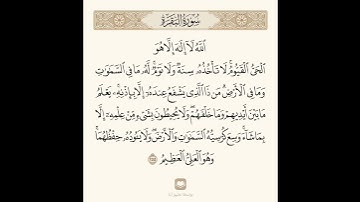 سُورَةُ البَقَرَةِ
ٱللَّهُ لَآ إِلَٰهَ إِلَّا هُوَ
ٱلْحَىُّ ٱلْقَيُّومُ لَا تَأْخُذُهُۥ سِنَةٌ وَلَا نَوْمٌ لَّهُۥ مَا فِى ٱلسَّمَٰوَٰتِ
وَمَا فِى ٱلْأَرْضِ مَن ذَا ٱلَّذِى يَشْفَعُ عِندَهُۥٓ إِلَّا بِإِذْنِهِۦ يَعْلَمُ
مَا بَيْنَ أَيْدِيهِمْ وَمَا خَلْفَهُمْ وَلَا يُحِيطُونَ بِشَىْءٍ مِّنْ عِلْمِهِۦٓ إِلَّا
بِمَا شَآءَ وَسِعَ كُرْسِيُّهُ ٱلسَّمَٰوَٰتِ وَٱلْأَرْضَ وَلَا يَـُٔودُهُۥ حِفْظُهُمَا
وَهُوَ ٱلْعَلِىُّ ٱلْعَظِيمُ